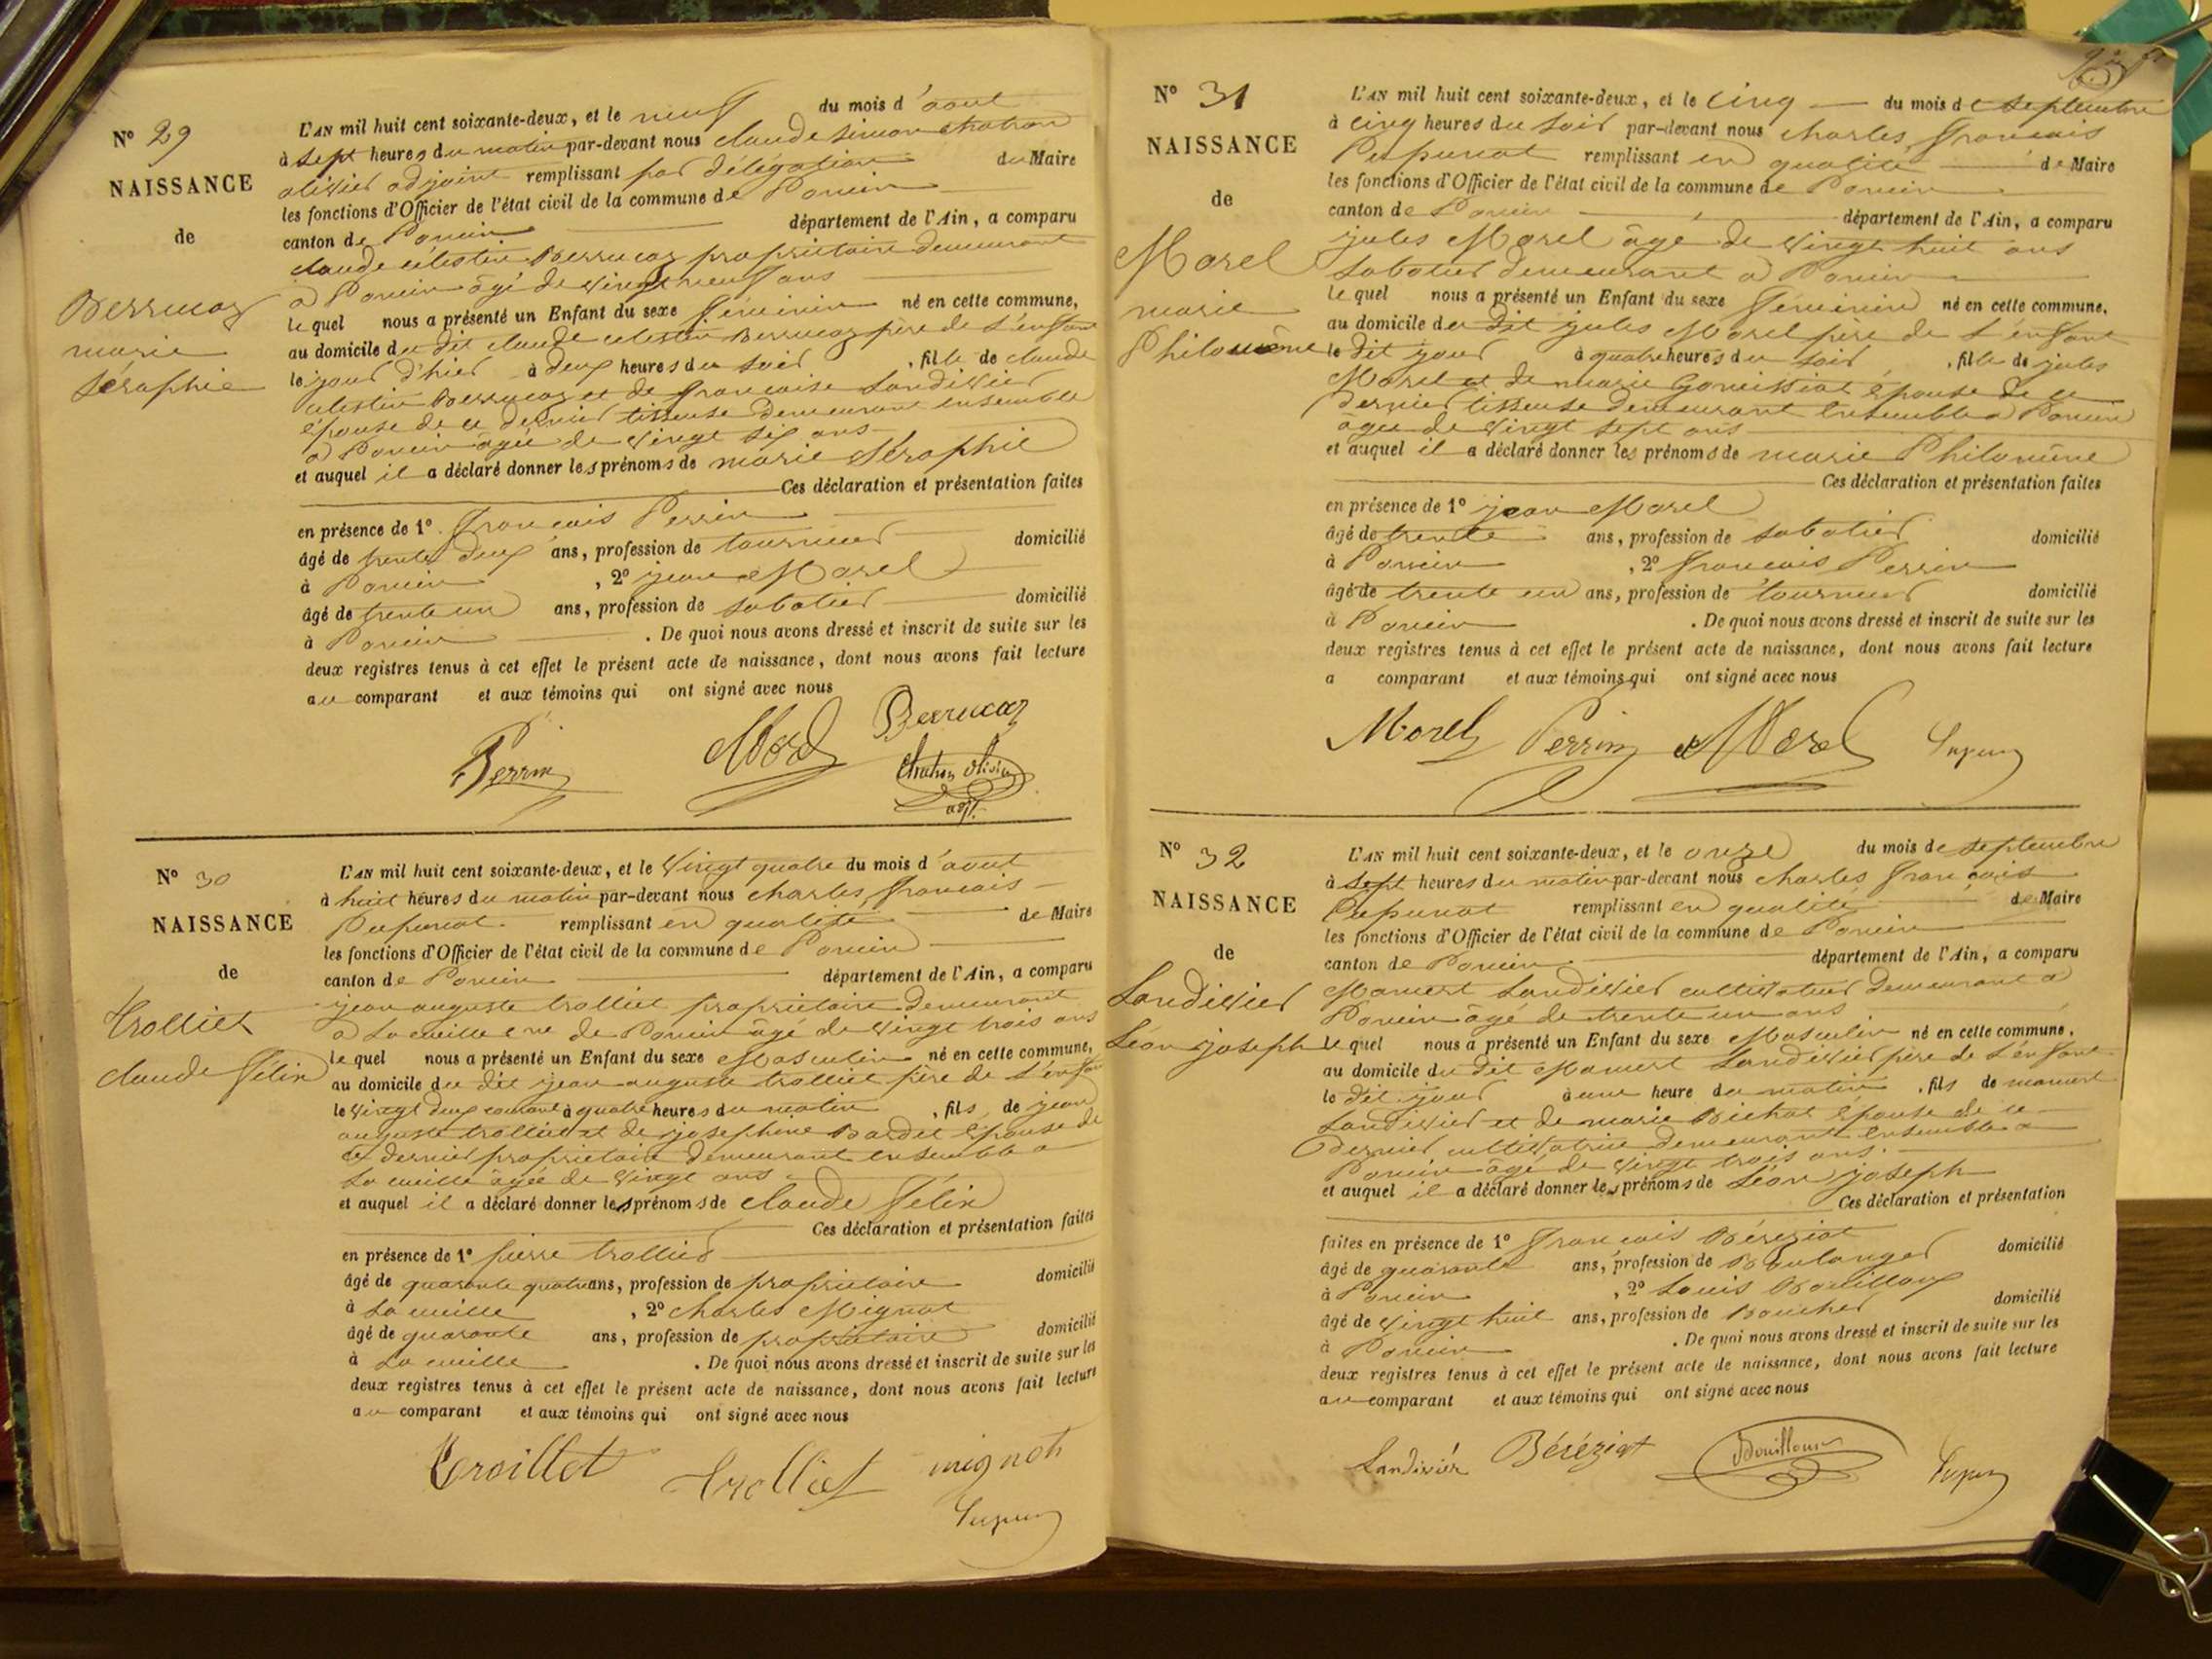 N° 29
NAISSANCE
de
Berrucaz
marie
Séraphie
L'AN mil huit cent soixante-deux, et le neuf du mois d'aout
à Sept heures du matin par-devant nous claude simon chatron
olivier adjoint remplissant par délégation du Maire
les fonctions d'Officier de l'état civil de la commune de Poncin
canton de Poncin département de l'Ain, a comparu
claude célestin Berrucaz propriétaire demeurant
à Poncin âgé de vingt neuf ans
lequel nous a présenté un Enfant du sexe féminin né en cette commune,
au domicile du dit claude celestin Berrucaz père de l'enfant
le jour d'hier à deux heures du soir, fille de claude
celestin Berrucaz et de francoise Landivier
épouse de ce dernier tisseuse demeurant ensemble
à Poncin âgée de vingt six ans
et auquel il a déclaré donner les prénoms de marie Séraphie
Ces déclaration et présentation faites
en présence de 1° françois Perrin
âgé de trente deux ans, profession de tourneur domicilié
à Poncin, 2° jean Morel
âgé de trente un ans, profession de sabotier domicilié
à Poncin. De quoi nous avons dressé et inscrit de suite sur les
deux registres tenus à cet effet le présent acte de naissance, dont nous avons fait lecture
au comparant et aux témoins qui ont signé avec nous
Berrucaz
Perrin Morel chatron olivier
adjt.
N° 30
NAISSANCE
de
trolliet
claude félix
L'AN mil huit cent soixante-deux, et le vingt quatre du mois d'aout
à huit heures du matin par-devant nous charles francois
Pupunat remplissant en qualité de Maire
les fonctions d'Officier de l'état civil de la commune de Poncin
canton de Poncin département de l'Ain, a comparu
jean auguste trolliet propriétaire demeurant
à La cueille cne de Poncin âgé de vingt trois ans
lequel nous a présenté un Enfant du sexe Masculin né en cette commune,
au domicile du dit jean auguste trolliet père de l'enfant
le vingt deux courant à quatre heures du matin, fils de jean
auguste trolliet et de josephine Bardet épouse de
ce dernier propriétaire demeurant ensemble à
La cueille âgée de vingt ans
et auquel il a déclaré donner les prénoms de claude félix
Ces déclaration et présentation faites
en présence de 1° pierre trolliet
âgé de quarante quatre ans, profession de propriétaire domicilié
à La cueille, 2° charles Mignot
âgé de quarante ans, profession de propriétaire domicilié
à La cueille. De quoi nous avons dressé et inscrit de suite sur les
deux registres tenus à cet effet le présent acte de naissance, dont nous avons fait lecture
au comparant et aux témoins qui ont signé avec nous
Troillet trolliet mignot
N° 31
NAISSANCE
de
Morel
marie
Philomène
L'AN mil huit cent soixante-deux, et le cinq du mois de septembre
à cinq heures du soir par-devant nous charles francois
Pupunat remplissant en qualité de Maire
les fonctions d'Officier de l'état civil de la commune de Poncin
canton de Poncin département de l'Ain, a comparu
jules Morel âgé de vingt huit ans
sabotier demeurant à Poncin
lequel nous a présenté un Enfant du sexe féminin né en cette commune,
au domicile du dit jules Morel père de l'enfant
le dit jour à quatre heures du soir, fille de jules
Morel et de marie Goneissiat épouse de ce
dernier tisseuse demeurant ensemble à Poncin
âgée de vingt sept ans
et auquel il a déclaré donner les prénoms de marie Philomène
Ces déclaration et présentation faites
en présence de 1° jean Morel
âgé de trente ans, profession de sabotier domicilié
à Poncin, 2° francois Perrin
âgé de trente un ans, profession de tourneur domicilié
à Poncin. De quoi nous avons dressé et inscrit de suite sur les
deux registres tenus à cet effet le présent acte de naissance, dont nous avons fait lecture
a comparant et aux témoins qui ont signé avec nous
Morel Perrin Morel
N° 32
NAISSANCE
de
Landivier
Léon joseph
L'AN mil huit cent soixante-deux, et le onze du mois de septembre
à sept heures du matin par-devant nous charles francois
Pupunat remplissant en qualité de Maire
les fonctions d'Officier de l'état civil de la commune de Poncin
canton de Poncin département de l'Ain, a comparu
Mamert Landivier cultivateur demeurant à
Poncin âgé de trente un ans
lequel nous a présenté un Enfant du sexe Masculin né en cette commune,
au domicile du dit Mamert Landivier père de l'enfant
le dit jour à une heure du matin, fils de mamert
Landivier et de marie Bichat épouse de ce
dernier cultivatrice demeurant ensemble à
Poncin âgé de vingt trois ans.
et auquel il a déclaré donner les prénoms de Léon joseph
Ces déclaration et présentation
faites en présence de 1° francois Béréziat
âgé de quarante ans, profession de Boulanger domicilié
à Poncin, 2° Louis Bouilloux
âgé de vingt huit ans, profession de Boucher domicilié
à Poncin. De quoi nous avons dressé et inscrit de suite sur les
deux registres tenus à cet effet le présent acte de naissance, dont nous avons fait lecture
au comparant et aux témoins qui ont signé avec nous
Landivier Béréziat Bouilloux